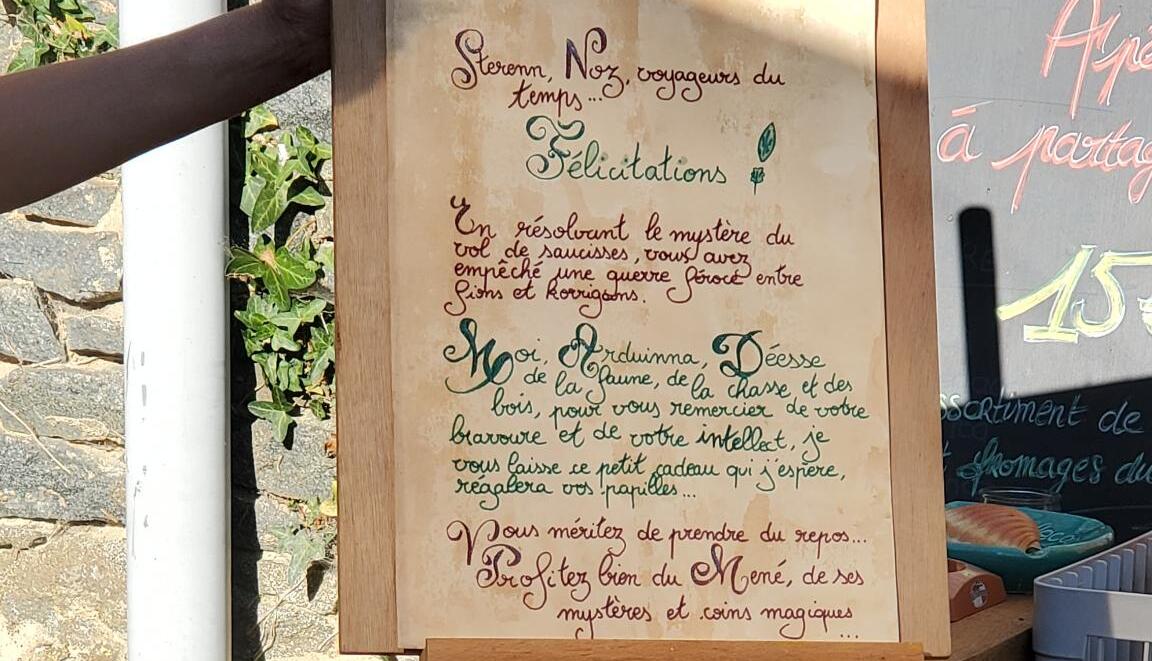 Sterenn, Noz, voyageurs du
temps...
Félicitations
En résolvant le mystère du
vol de saucisses, vous avez
empêché une guerre féroce entre
fions et korrigans.
Moi, Arduinna, Déesse
de la faune, de la chasse et des
bois, pour vous remercier de votre
bravoure et de votre intellect, je
vous laisse ce petit cadeau qui j'espère,
régalera vos papilles...
Vous méritez de prendre du repos...
Profitez bien du Mené, de ses
mystères et coins magiques
...
Apé
à partag
15
ssortiment de
fromages du